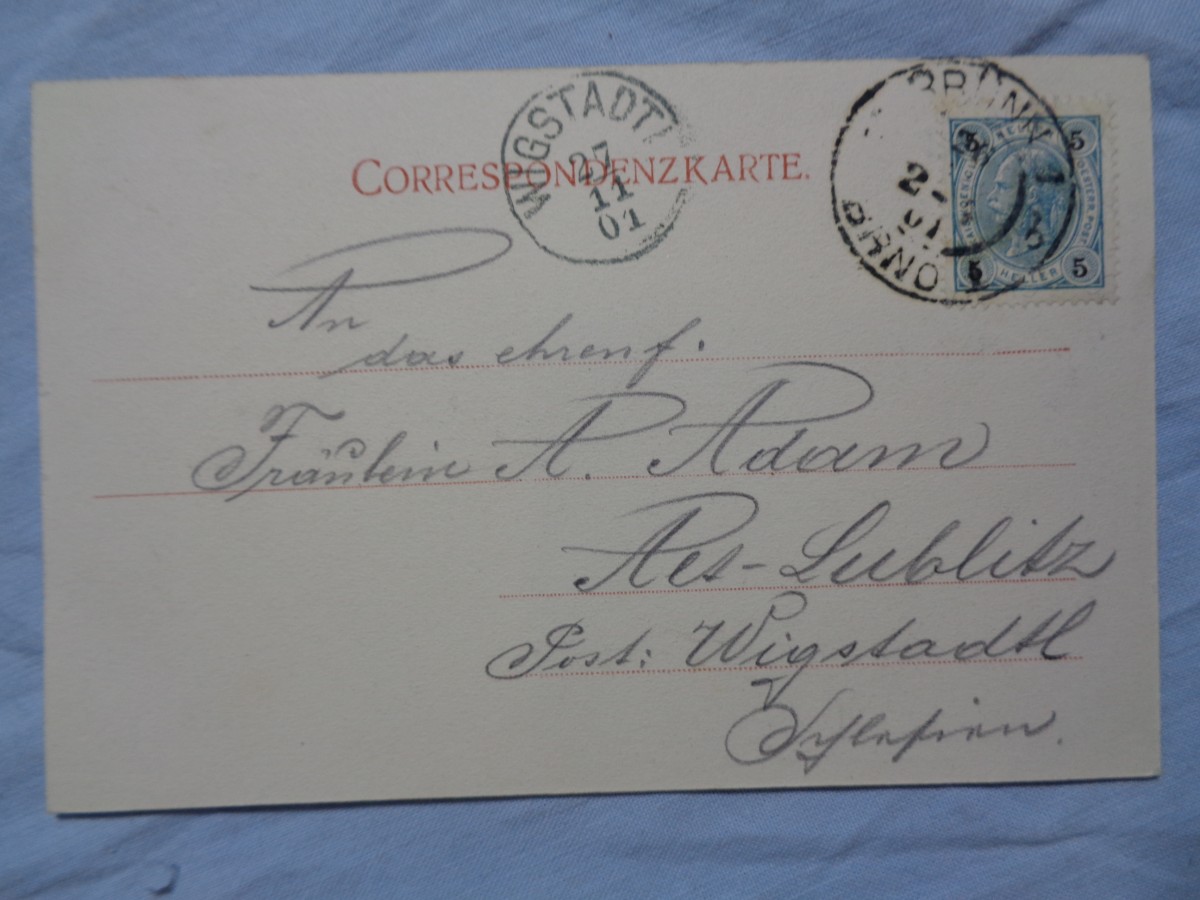 WIGSTADTL
27
11
01
BRÜNN
BRNO
2-
01
5 5
5 HELLER 5
CORRESPONDENZKARTE.
An
das ehrenf.
Fräulein A. Adam
Aes-Lublitz
Post: Wigstadtl
Schlesien.